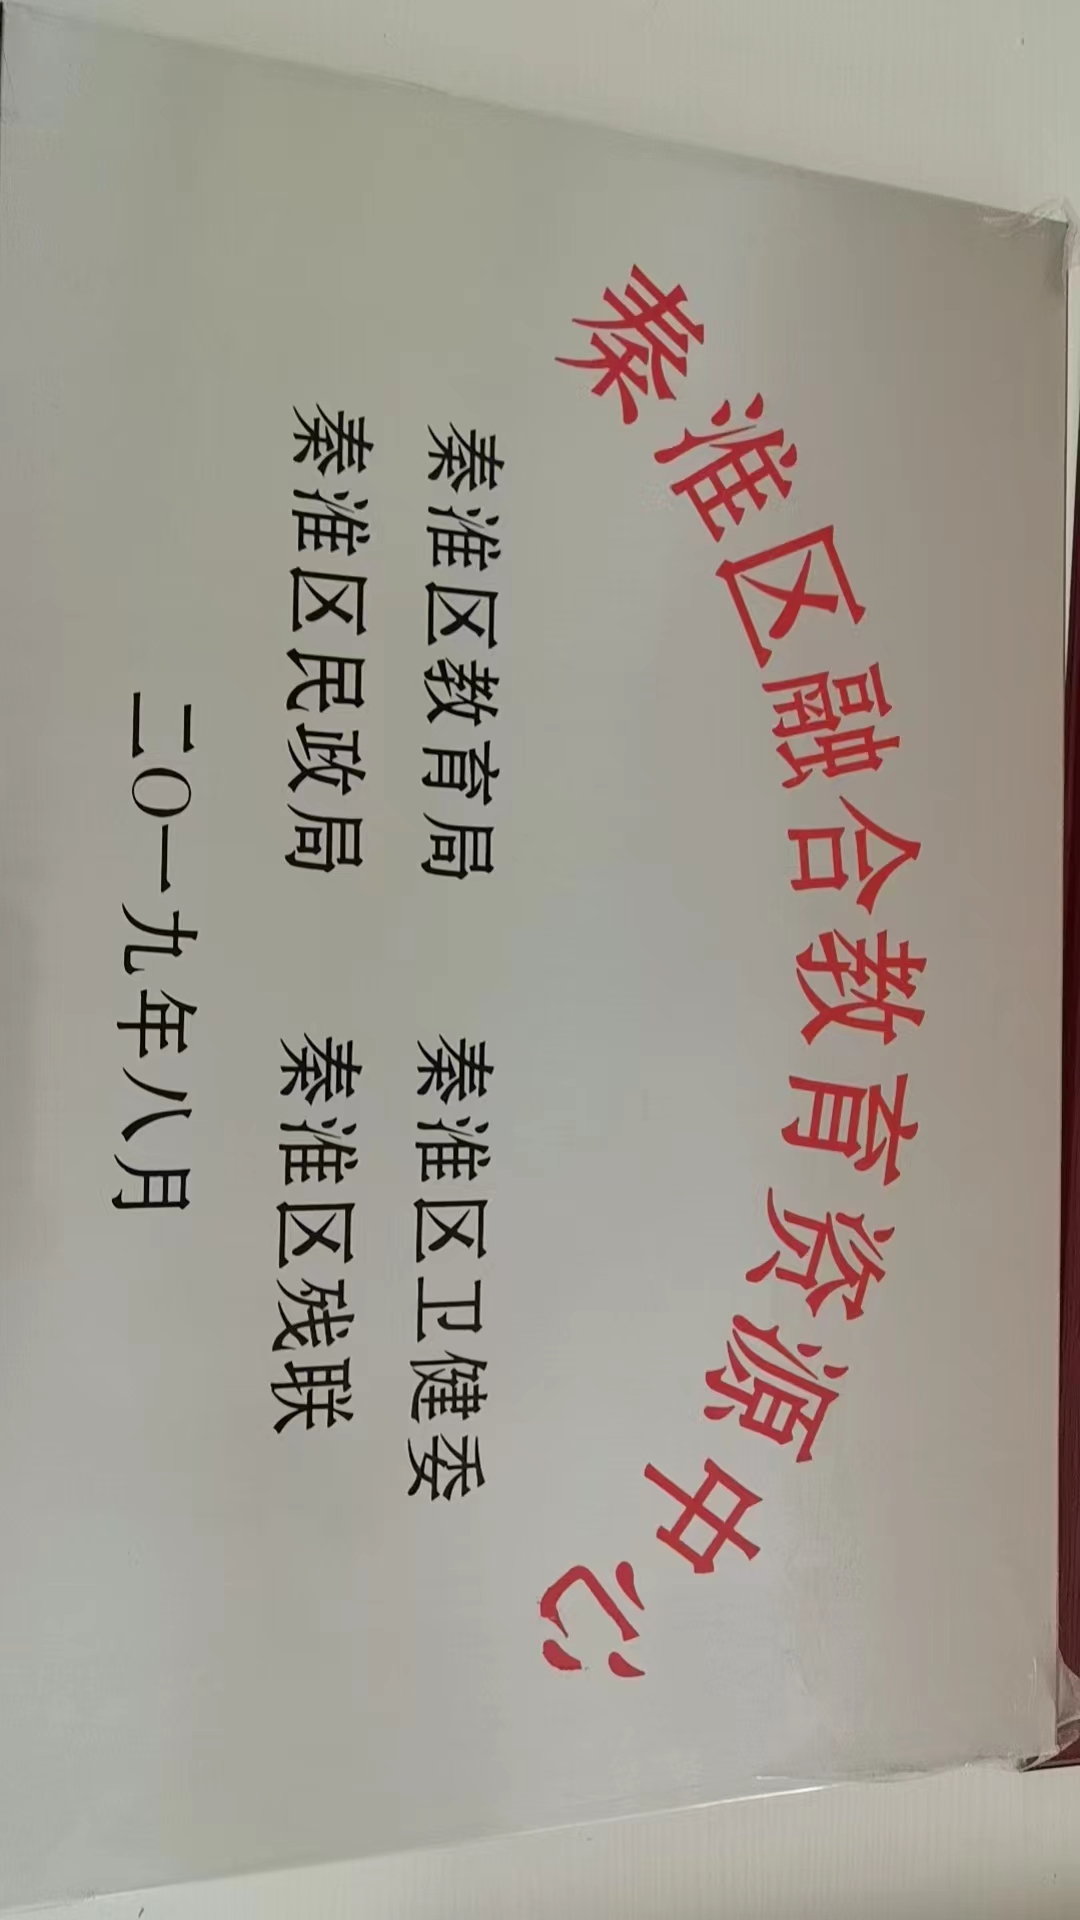 秦淮区融合教育资源中心
秦淮区教育局 秦淮区卫健委
秦淮区民政局 秦淮区残联
二〇一九年八月